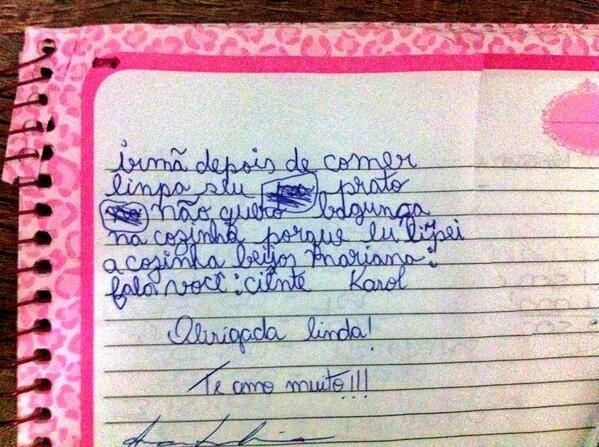 irmã depois de comer
linpa seu prato
não quero bagunça
na cozinha porque eu lipei
a cozinha beijos mariana:
fala você: cilnte Karol
Obrigada linda!
Te amo muito!!!